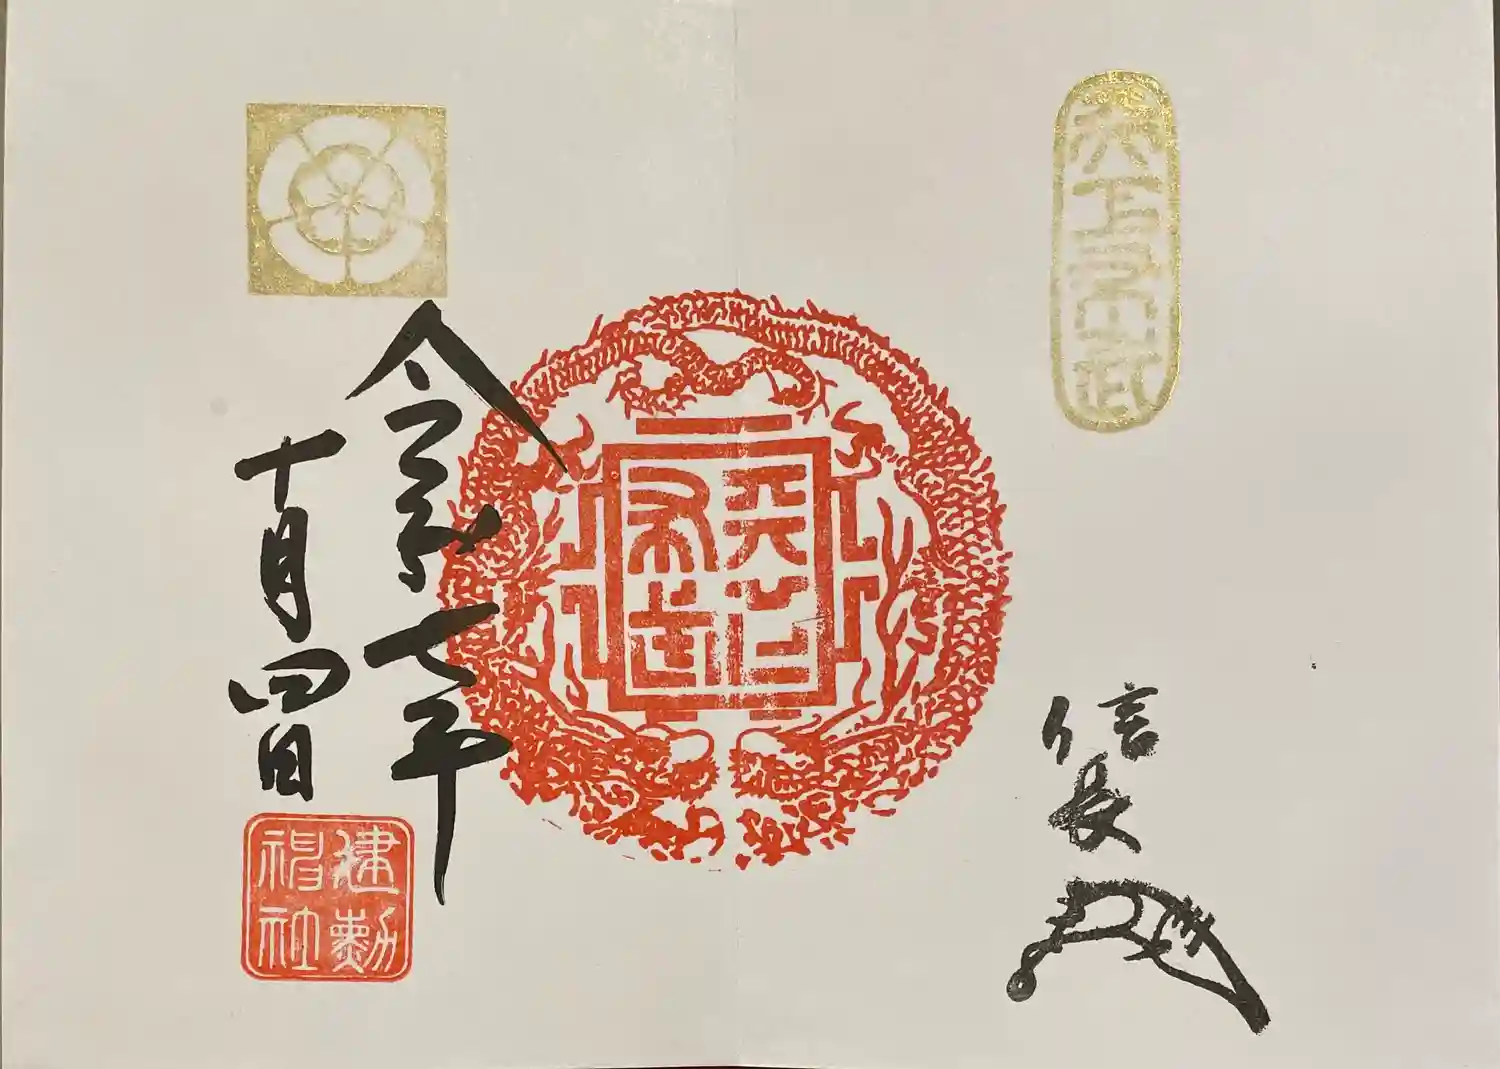 天下布武
信長
天下布武
令和七年
十月四日
建勲
神社